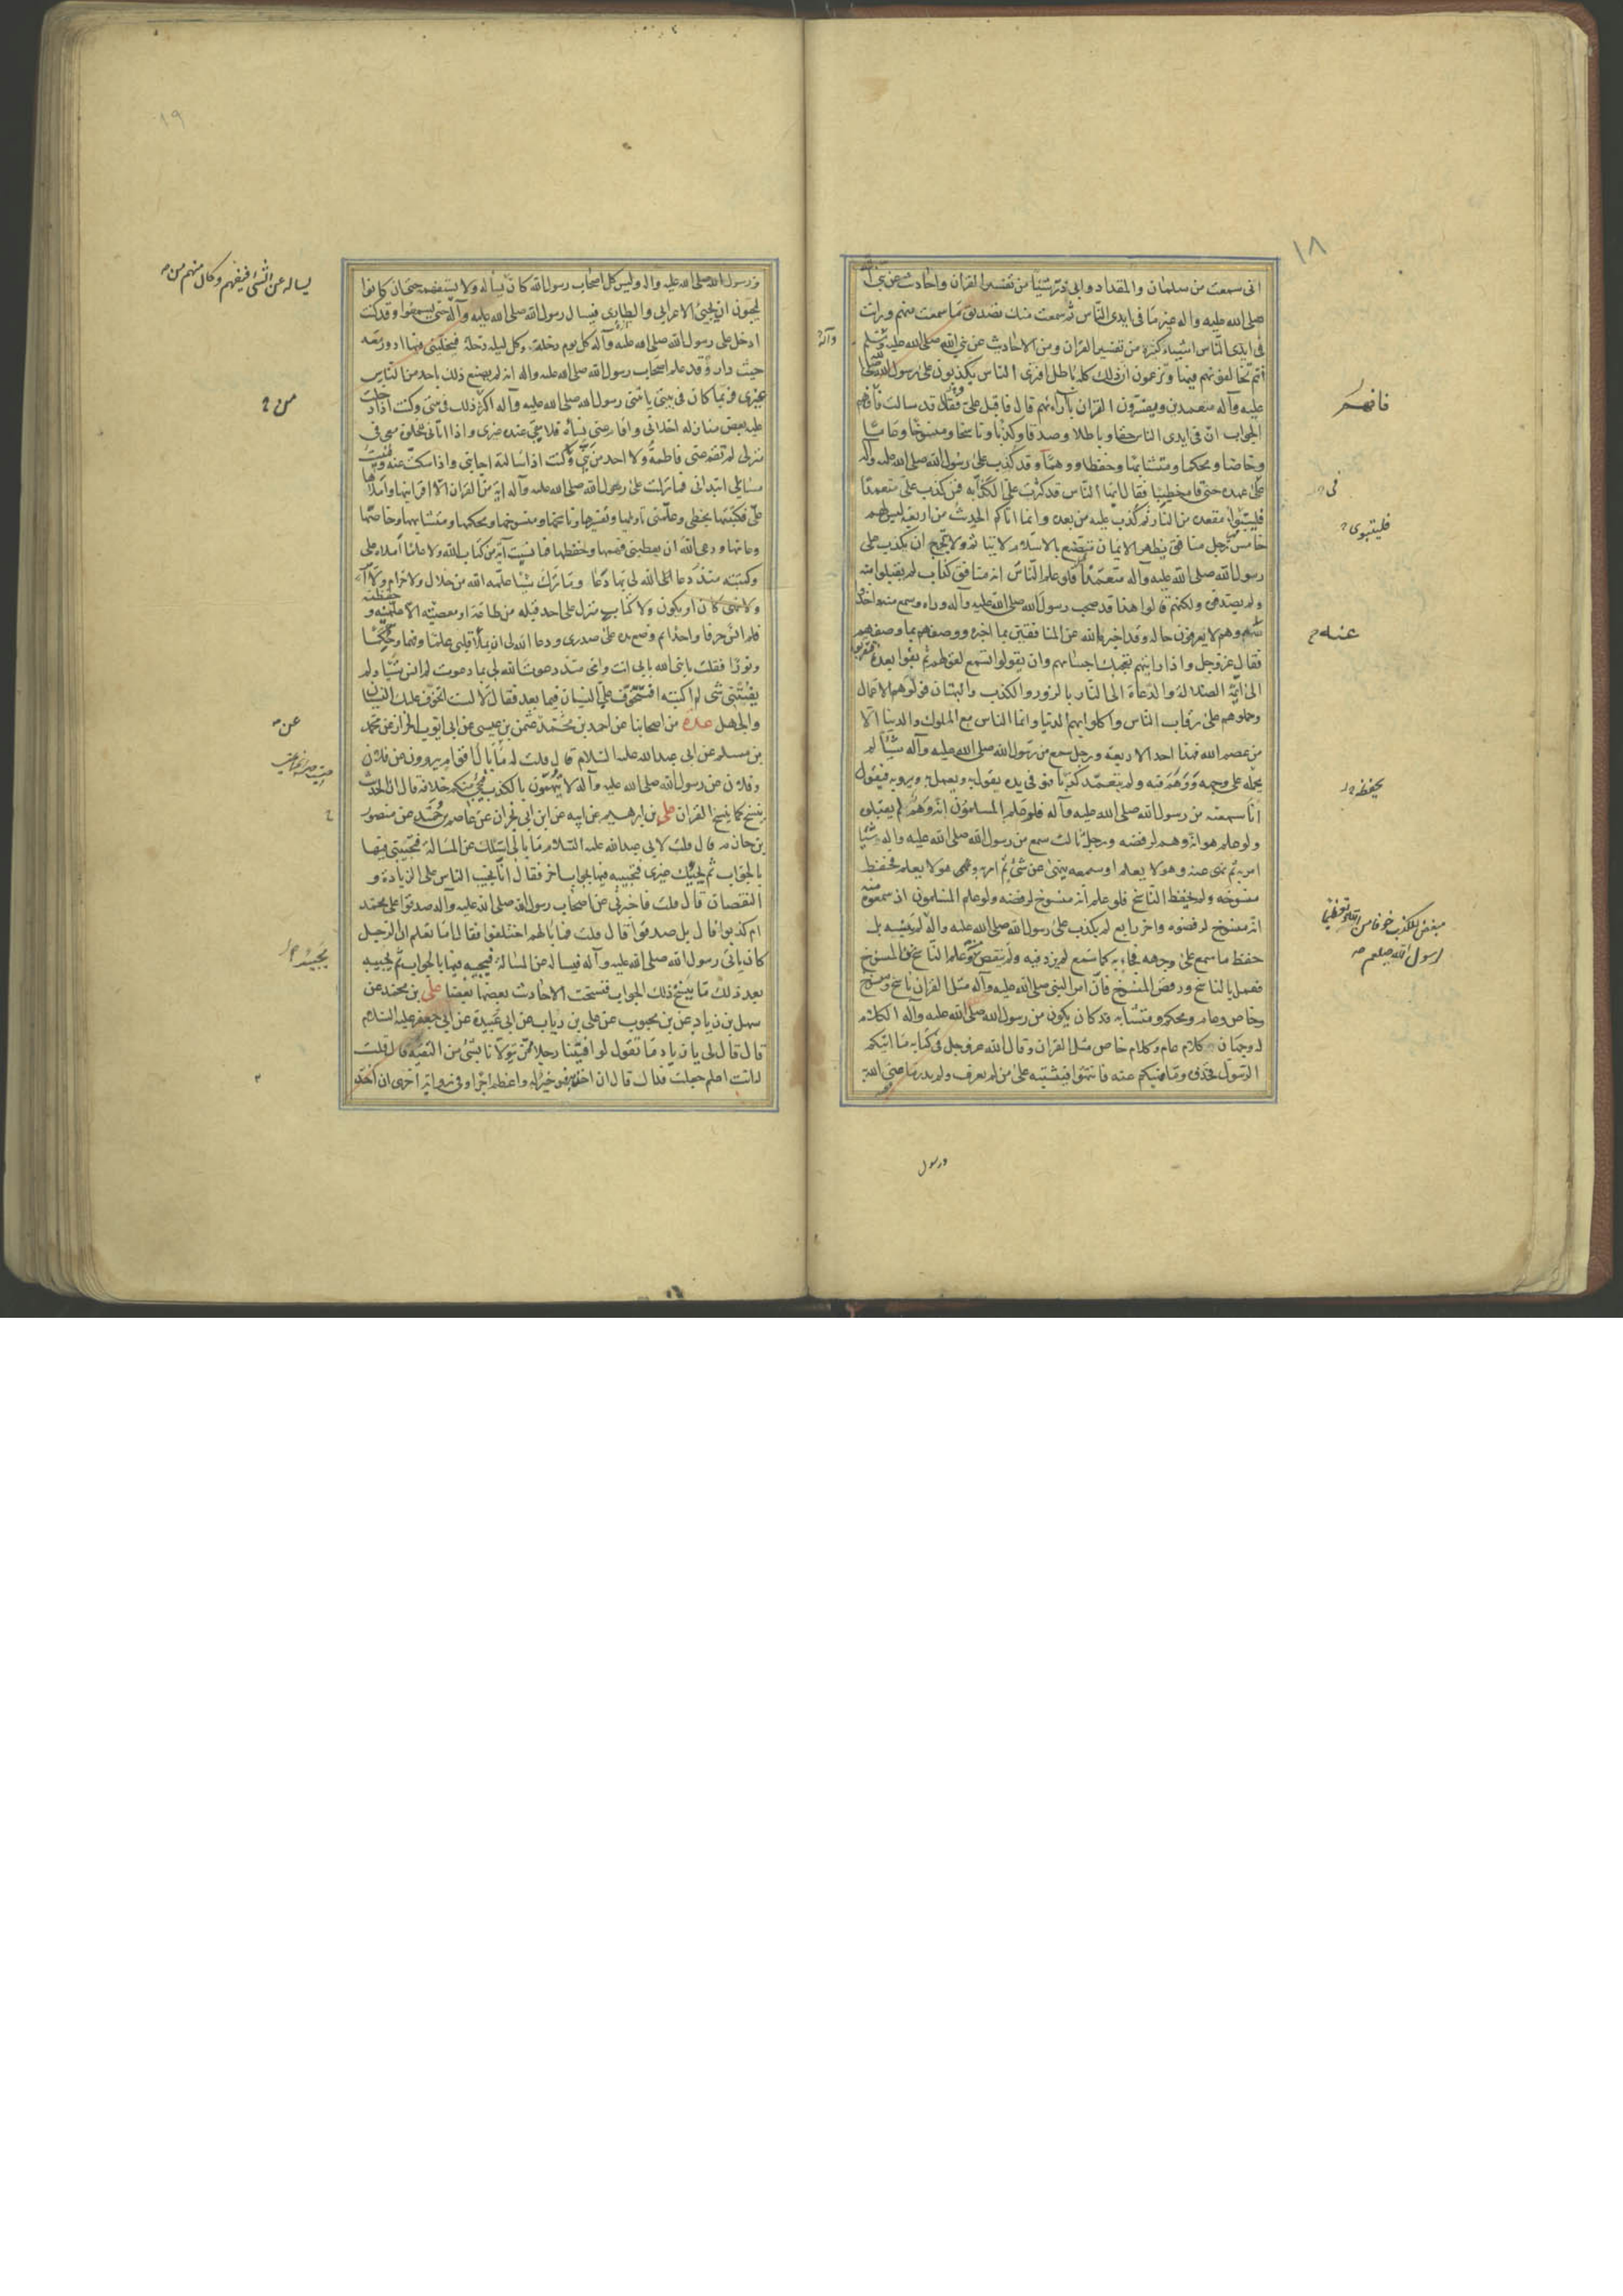 ١٨
انى سمعت من سلمان والمقداد وابى ذر شيئا من تفسير القران واحاديث عن نبى الله
صلى الله عليه واله غير ما فى ايدى الناس ثم سمعت منك تصديق ما سمعت منهم ورايت
فى ايدى الناس اشياء كثيرة من تفسير القران ومن الاحاديث عن نبى الله صلى الله عليه وسلم
وآله
انتم تخالفونهم فيها وتزعمون ان ذلك كله باطل افترى الناس يكذبون على رسول الله صلى الله
عليه وآله متعمدين ويفسرون القران بآرائهم قال فاقبل على فقال قد سالت فافهم
فافهم
الجواب ان فى ايدى الناس حقا وباطلا وصدقا وكذبا وناسخا ومنسوخا وعاما
وخاصا ومحكما ومتشابها وحفظا ووهما وقد كذب على رسول الله صلى الله عليه وآله
على عهده حتى قام خطيبا فقال ايها الناس قد كثرت على الكذابه فمن كذب على متعمدا
فى
فليتبوا مقعده من النار ثم كذب عليه من بعده وانما اتاكم الحديث من اربعة ليس لهم
فليتبوئ
خامس رجل منافق يظهر الايمان متصنع بالاسلام لا يتاثم ولا يتحرج ان يكذب على
رسول الله صلى الله عليه وآله متعمدا فلو علم الناس انه منافق كذاب لم يقبلوا منه
ولم يصدقوه ولكنهم قالوا هذا قد صحب رسول الله صلى الله عليه وآله وراه وسمع منه واخذوا
عنه وهم لا يعرفون حاله وقد اخبره الله عن المنافقين بما اخبره ووصفهم بما وصفهم
عنه
فقال عز وجل واذا رايتهم تعجبك اجسامهم وان يقولوا تسمع لقولهم ثم بقوا بعده فتقربوا
الى ائمة الضلالة والدعاة الى النار بالزور والكذب والبهتان فولوهم الاعمال
وحملوهم على رقاب الناس واكلوا بهم الدنيا وانما الناس مع الملوك والدنيا الا
من عصم الله فهذا احد الاربعة ورجل سمع من رسول الله صلى الله عليه وآله شيئا لم
يحمله على وجهه ووهم فيه ولم يتعمد كذبا فهو فى يده يقول به ويعمل به ويرويه فيقول
يحفظه
انا سمعته من رسول الله صلى الله عليه وآله فلو علم المسلمون انه وهم لم يقبلوه
ولو علم هو انه وهم لرفضه ورجل ثالث سمع من رسول الله صلى الله عليه واله شيئا
امر به ثم نهى عنه وهو لا يعلم او سمعه ينهى عن شئ ثم امر به وهو لا يعلم فحفظ
منسوخه ولم يحفظ الناسخ فلو علم انه منسوخ لرفضه ولو علم المسلمون اذ سمعوه منه
انه منسوخ لرفضوه واخر رابع لم يكذب على رسول الله صلى الله عليه وآله لم ينسه بل
مبغض للكذب خوفا من الله وتعظيما
لرسول الله صلعم
حفظ ما سمع على وجهه فجاء به كما سمع لم يزد فيه ولم ينقص منه وعلم الناسخ من المنسوخ
فعمل بالناسخ ورفض المنسوخ فان امر النبى صلى الله عليه وآله مثل القران ناسخ ومنسوخ
وخاص وعام ومحكم ومتشابه قد كان يكون من رسول الله صلى الله عليه وآله الكلام
له وجهان كلام عام وكلام خاص مثل القران وقال الله عز وجل فى كتابه ما اتيكم
الرسول فخذوه وما نهيكم عنه فانتهوا فيشتبه على من لم يعرف ولم يدر ما عنى الله به
ورسول
١٩
ورسول الله صلى الله عليه واله وليس كل اصحاب رسول الله كان يساله ولا يستفهمه حتى ان كانوا
يساله عن الشئ فيفهم وكان منهم من
ليحبون ان يجئ الاعرابى والطارى فيسال رسول الله صلى الله عليه وآله حتى يسمعوا وقد كنت
ادخل على رسول الله صلى الله عليه وآله كل يوم دخلة وكل ليلة دخلة فيخلينى فيها ادور معه
حيث دار وقد علم اصحاب رسول الله صلى الله عليه واله انه لم يصنع ذلك باحد من الناس
غيرى فربما كان فى بيتى ياتينى رسول الله صلى الله عليه وآله اكثر ذلك فى بيتى وكنت اذا دخلت
من
عليه بعض منازله اخلانى واقام عنى نساءه فلا يبقى عنده غيرى واذا اتانى للخلوة معى فى
منزلى لم تقم عنى فاطمة ولا احد من بنى وكنت اذا سالته اجابنى واذا سكت عنه وفنيت
مسايلى ابتدانى فما نزلت على رسول الله صلى الله عليه وآله اية من القران الا اقرانيها واملاها
على فكتبتها بخطى وعلمنى تاويلها وتفسيرها وناسخها ومنسوخها ومحكمها ومتشابهها وخاصها
وعامها ودعى الله ان يعطينى فهمها وحفظها فما نسيت آية من كتاب الله ولا علما املاه على
وكتبته منذ دعا الله لى بما دعا وما ترك شيئا علمه الله من حلال ولا حرام ولا امر
ولا نهى كان او يكون ولا كتاب منزل على احد قبله من طاعة او معصية الا علمنيه وحفظته
فلم انس حرفا واحدا ثم وضع يده على صدرى ودعا الله لى ان يملا قلبى علما وفهما وحكما
ونورا فقلت يا نبى الله بابى انت وامى منذ دعوت الله لى بما دعوت لم انس شيئا ولم
يفتنى شئ لم اكتبه افتتخوف على النسيان فيما بعد فقال لا لست اتخوف عليك النسيان
والجهل عدة من اصحابنا عن احمد بن محمد عثمن بن عيسى عن ابى ايوب الخزاز عن محمد
عن
بن مسلم عن ابى عبد الله عليه السلام قال قلت له ما بال اقوام يروون عن فلان
وفلان عن رسول الله صلى الله عليه وآله لا يتهمون بالكذب فيجئ منكم خلافه قال ان الحديث
ينسخ كما ينسخ القران على بن ابرهيم عن ابيه عن ابن ابى نجران عن عاصم بن حميد عن منصور
بن حازم قال قلت لابى عبد الله عليه السلام ما بالى اسئلك عن المسالة فتجيبنى فيها
بالجواب ثم يجيئك غيرى فتجيبه فيها بجواب اخر فقال انا نجيب الناس على الزيادة و
النقصان قال قلت فاخبرنى عن اصحاب رسول الله صلى الله عليه وآله صدقوا على محمد
ام كذبوا قال بل صدقوا قال قلت فما بالهم اختلفوا فقال اما تعلم ان الرجل
كان ياتى رسول الله صلى الله عليه وآله فيساله عن المسالة فيجيبه فيها بالجواب ثم يجيبه
يجيئه
بعد ذلك ما ينسخ ذلك الجواب فنسخت الاحاديث بعضها بعضا على بن محمد عن
سهل بن زياد عن بن محبوب عن على بن رياب عن ابى عبيدة عن ابى جعفر عليه السلام
قال قال لى يا زياد ما تقول لو افتينا رجلا ممن يتولانا بشئ من التقية قال قلت
له انت اعلم جعلت فداك قال ان اخذ به فهو خير له واعظم اجرا وفى رواية اخرى ان اخذ به